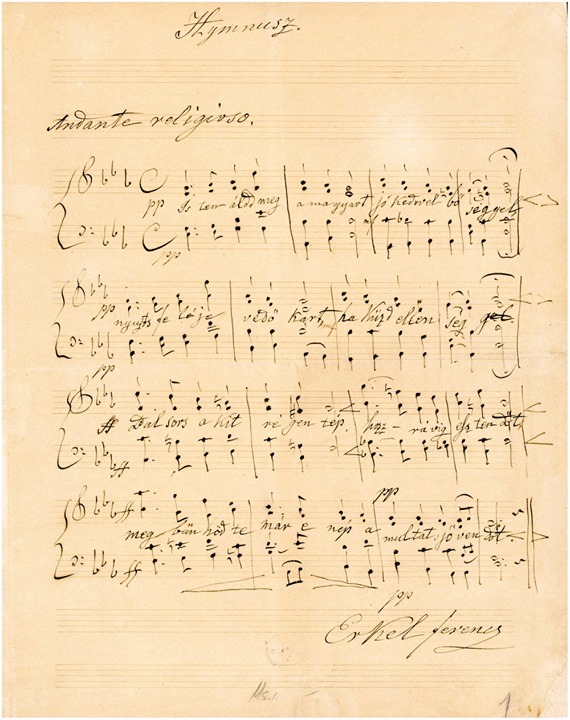 Hymnusz.
Andante religioso.
pp Is ten áldd meg a magyart jó kedvvel bő ség gyel
pp
pp nyujts fe léje védő kart, ha küzd ellen ség gel
pp
ff Bal sors a kit ré gen tép, hoz – rá víg esz ten dőt,
ff
ff meg bűn hőd te már e nép a multat jöven dőt.
pp
ff
pp
Erkel ferencz
Ms.
1